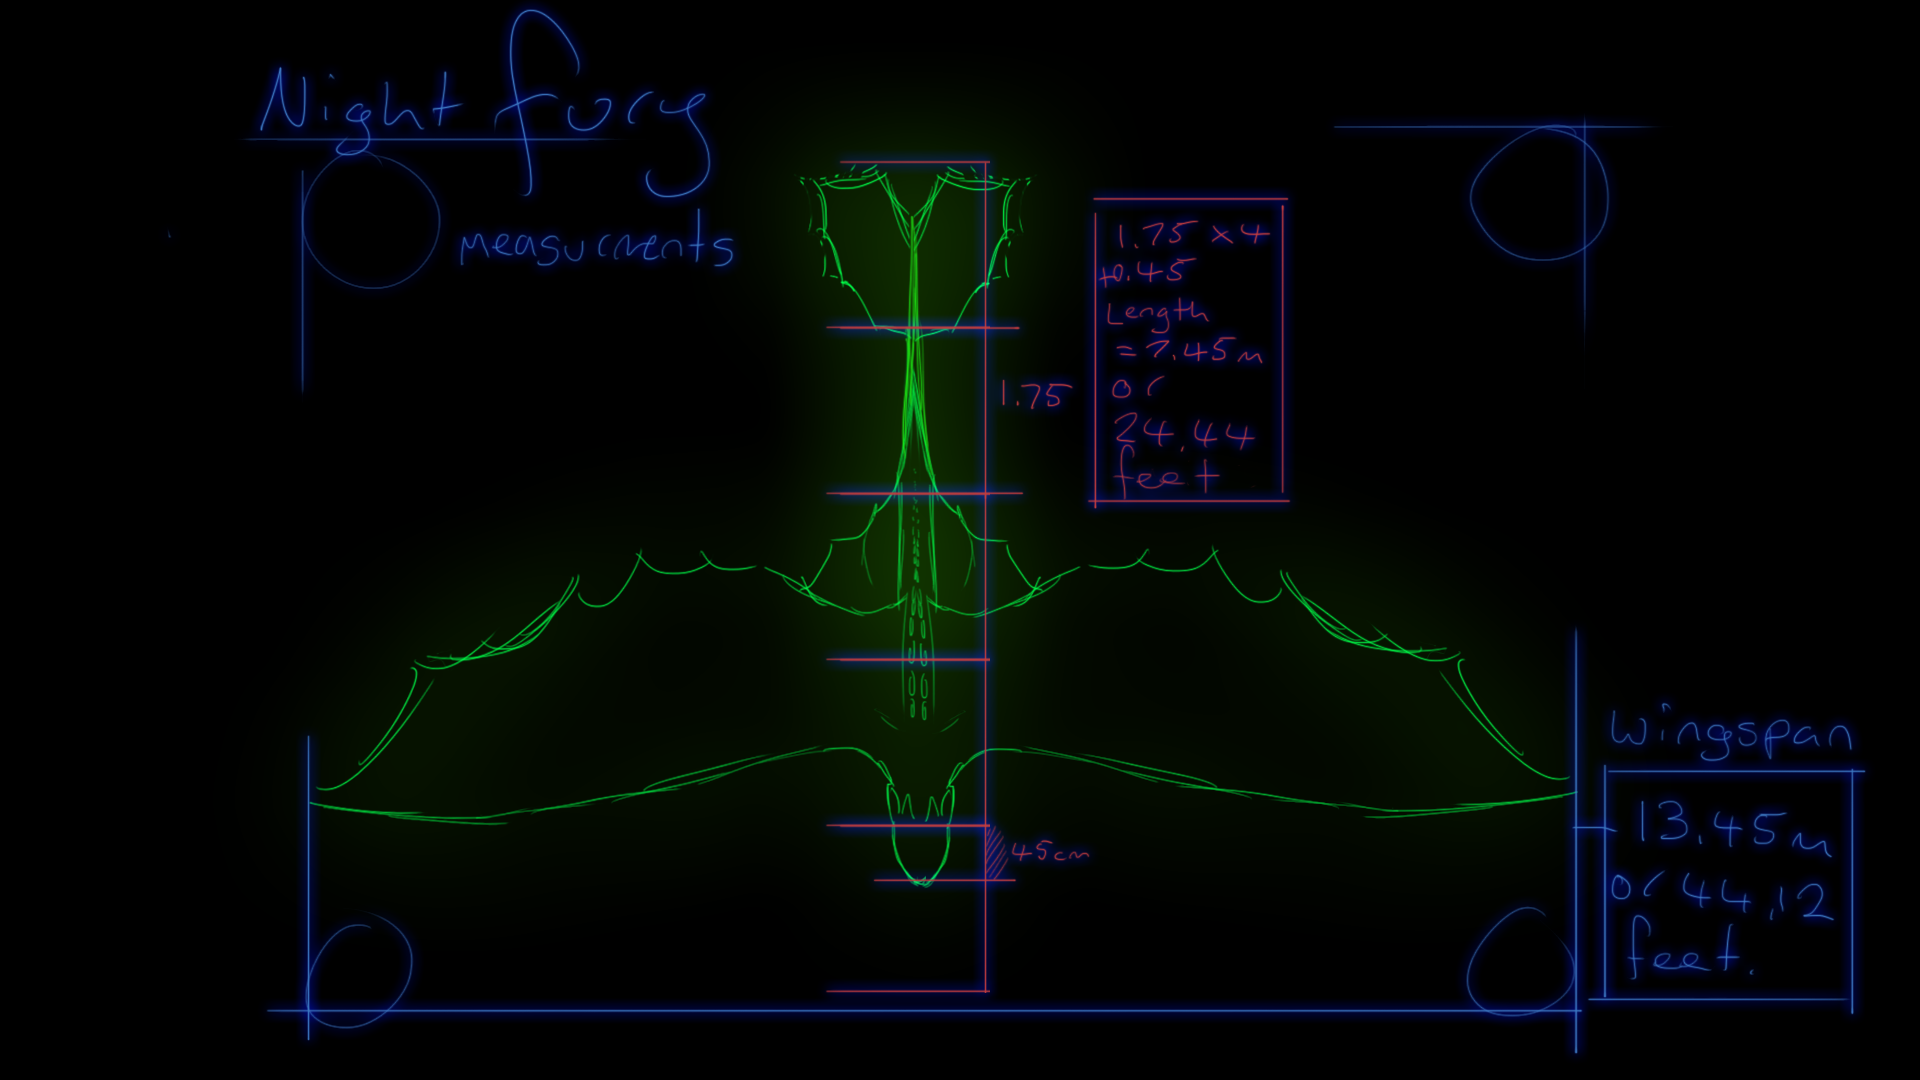 Night fury
measurments
1.75 x 4
+0.45
Length
= 7.45m
or
24.44
feet
1.75
wingspan
13.45m
or 44.12
feet.
45cm